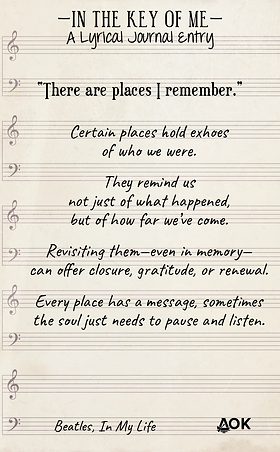 —IN THE KEY OF ME—
A Lyrical Journal Entry
"There are places I remember."
Certain places hold exhoes
of who we were.
They remind us
not just of what happened,
but of how far we've come.
Revisiting them—even in memory—
can offer closure, gratitude, or renewal.
Every place has a message, sometimes
the soul just needs to pause and listen.
Beatles, In My Life
AOK